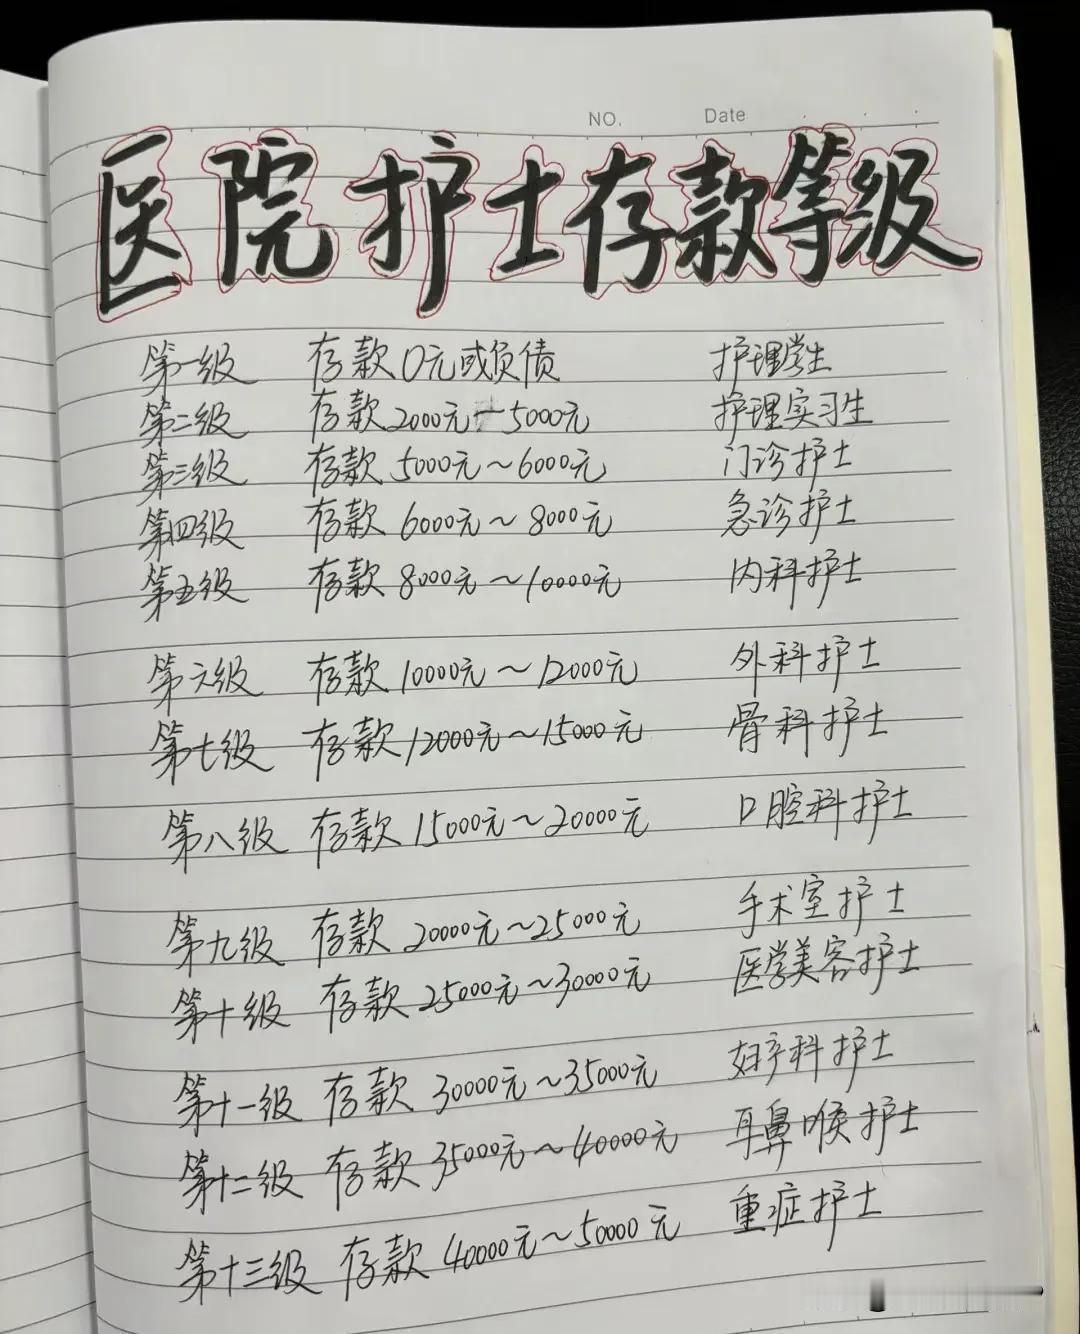 NO. Date
医院护士存款等级
第一级 存款0元或负债 护理学生
第二级 存款2000元-5000元 护理实习生
第三级 存款5000元~6000元 门诊护士
第四级 存款6000元~8000元 急诊护士
第五级 存款8000元~10000元 内科护士
第六级 存款10000元~12000元 外科护士
第七级 存款12000元~15000元 骨科护士
第八级 存款15000元~20000元 口腔科护士
第九级 存款20000元~25000元 手术室护士
第十级 存款25000元~30000元 医学美容护士
第十一级 存款30000元~35000元 妇产科护士
第十二级 存款35000元~40000元 耳鼻喉护士
第十三级 存款40000元~50000元 重症护士